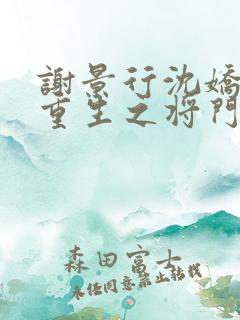 謝景行沈嬌
重生之将門
森田富士
未任同意禁止轉載